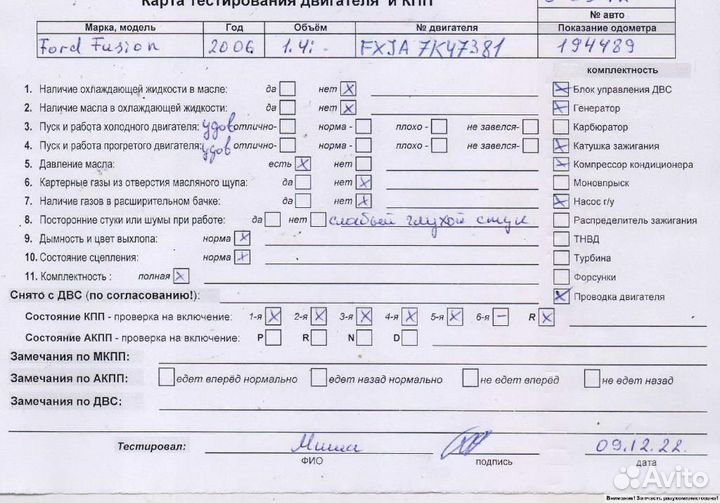 Карта тестирования двигателя и КПП
№ авто
Марка, модель Год Объём № двигателя Показание одометра
Ford Fusion 2006 1.4i FXJA 7K47381 194489
комплектность
1. Наличие охлаждающей жидкости в масле: да нет X
Блок управления ДВС
2. Наличие масла в охлаждающей жидкости: да нет X
Генератор
3. Пуск и работа холодного двигателя: удов отлично- норма - плохо - не завелся-
Карбюратор
4. Пуск и работа прогретого двигателя: удов отлично- норма - плохо - не завелся-
Катушка зажигания
5. Давление масла: есть X нет
Компрессор кондиционера
6. Картерные газы из отверстия масляного щупа: да нет X
Моновпрыск
7. Наличие газов в расширительном бачке: да нет X
Насос г/у
8. Посторонние стуки или шумы при работе: да нет слабый глухой стук
Распределитель зажигания
9. Дымность и цвет выхлопа: норма X
ТНВД
10. Состояние сцепления: норма X
Турбина
11. Комплектность : полная X
Форсунки
Снято с ДВС (по согласованию!):
Проводка двигателя
Состояние КПП - проверка на включение: 1-я X 2-я X 3-я X 4-я X 5-я X 6-я – R X
Состояние АКПП - проверка на включение: P R N D
Замечания по МКПП:
Замечания по АКПП: едет вперёд нормально едет назад нормально не едет вперёд не едет назад
Замечания по ДВС:
Тестировал: Миша 09.12.22
ФИО подпись дата
Внимание! Запчасть разукомплектована!
Avito